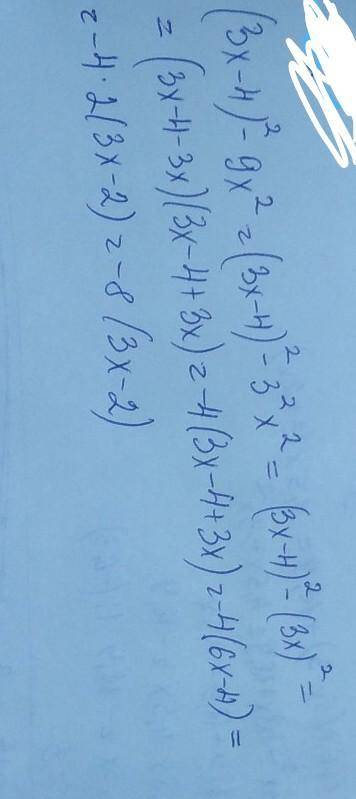 (3x-4)² - 9x² = (3x-4)² - 3²x² = (3x-4)² - (3x)² =
= (3x-4-3x)(3x-4+3x) = -4(3x-4+3x) = -4(6x-4) =
= -4·2(3x-2) = -8(3x-2)